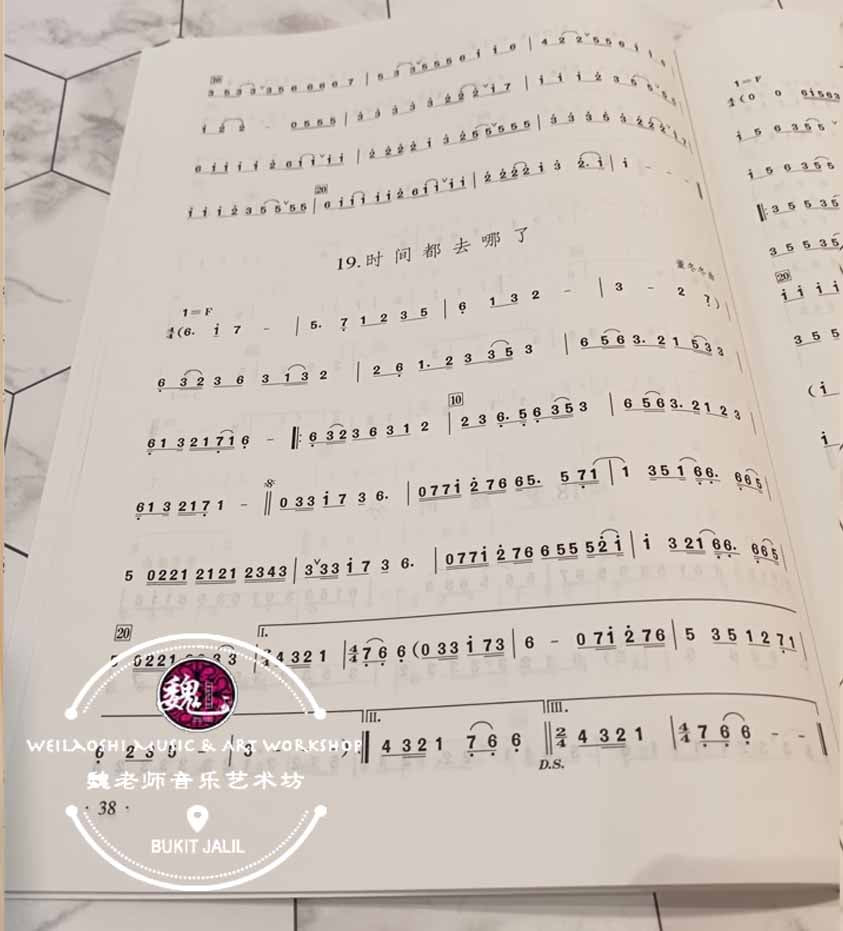 10
3 5 3 3 ˅ 3 5 6 6 6 6 7 | 5 3 3 ˅ 5 5 5 6 i i 6 | 4 2 2 ˅ 5 5 6 i i
i 2 2 - 0 5 5 5 | 3 3 3 3 3 2 2 2 ˅ i 7 | i i i 2 3 5 5 ˅ 5 5
6 i i i i 2 6 i i ˅ i i | 2 2 2 2 i 3 2 5 5 ˅ 5 5 5 | 3 3 3 5 3 2 2 2 ˅ i 7
20
i i i 2 3 5 5 ˅ 5 5 | 6 i i i i i 2 6 i i ˅ i i | 2 2 2 2 i 3 2. i | i - - -
19.时间都去哪了
董冬冬曲
1=F
4/4 (6. i 7 - | 5. 7 1 2 3 5 | 6 1 3 2 - | 3 - 2 7)
6 3 2 3 6 3 1 3 2 | 2 6 1. 2 3 3 5 3 | 6 5 6 3. 2 1 5 3 3
10
6 1 3 2 1 7 1 6 - ‖: 6 3 2 3 6 3 1 2 | 2 3 6. 5 6 3 5 3 | 6 5 6 3. 2 1 2 3
6 1 3 2 1 7 1 - ‖ 0 3 3 i 7 3 6. | 0 7 7 i 2 7 6 6 5. 5 7 1 | 1 3 5 1 6 6. 6 6 5
5 0 2 2 1 2 1 2 1 2 3 4 3 | 3 ˅ 3 3 i 7 3 6. | 0 7 7 i 2 7 6 6 5 5 5 2 i | i 3 2 1 6 6. 6 6 5
20
I.
5 0 2 2 1 3 3 | 2/4 4 3 2 1 | 4/4 7 6 6 (0 3 3 i 7 3 | 6 - 0 7 i 2 7 6 | 5 3 5 1 2 7 1
II.
III.
6 2 3 | 3 - - ) :‖ 4 3 2 1 7 6 6 ‖ 2/4 4 3 2 1 | 4/4 7 6 6 - -
D.S.
· 38 ·
1=F
4/4 (0 0 6 i 5 6 3
i 5 6 3 5 5
i 5 6 3 5 5
‖: 3 5 5 3 5
3 5 5 3 5
20
i i i i
3 5 5
(i
i
魏
WEILAOSHI MUSIC & ART WORKSHOP
魏老师音乐艺术坊
BUKIT JALIL